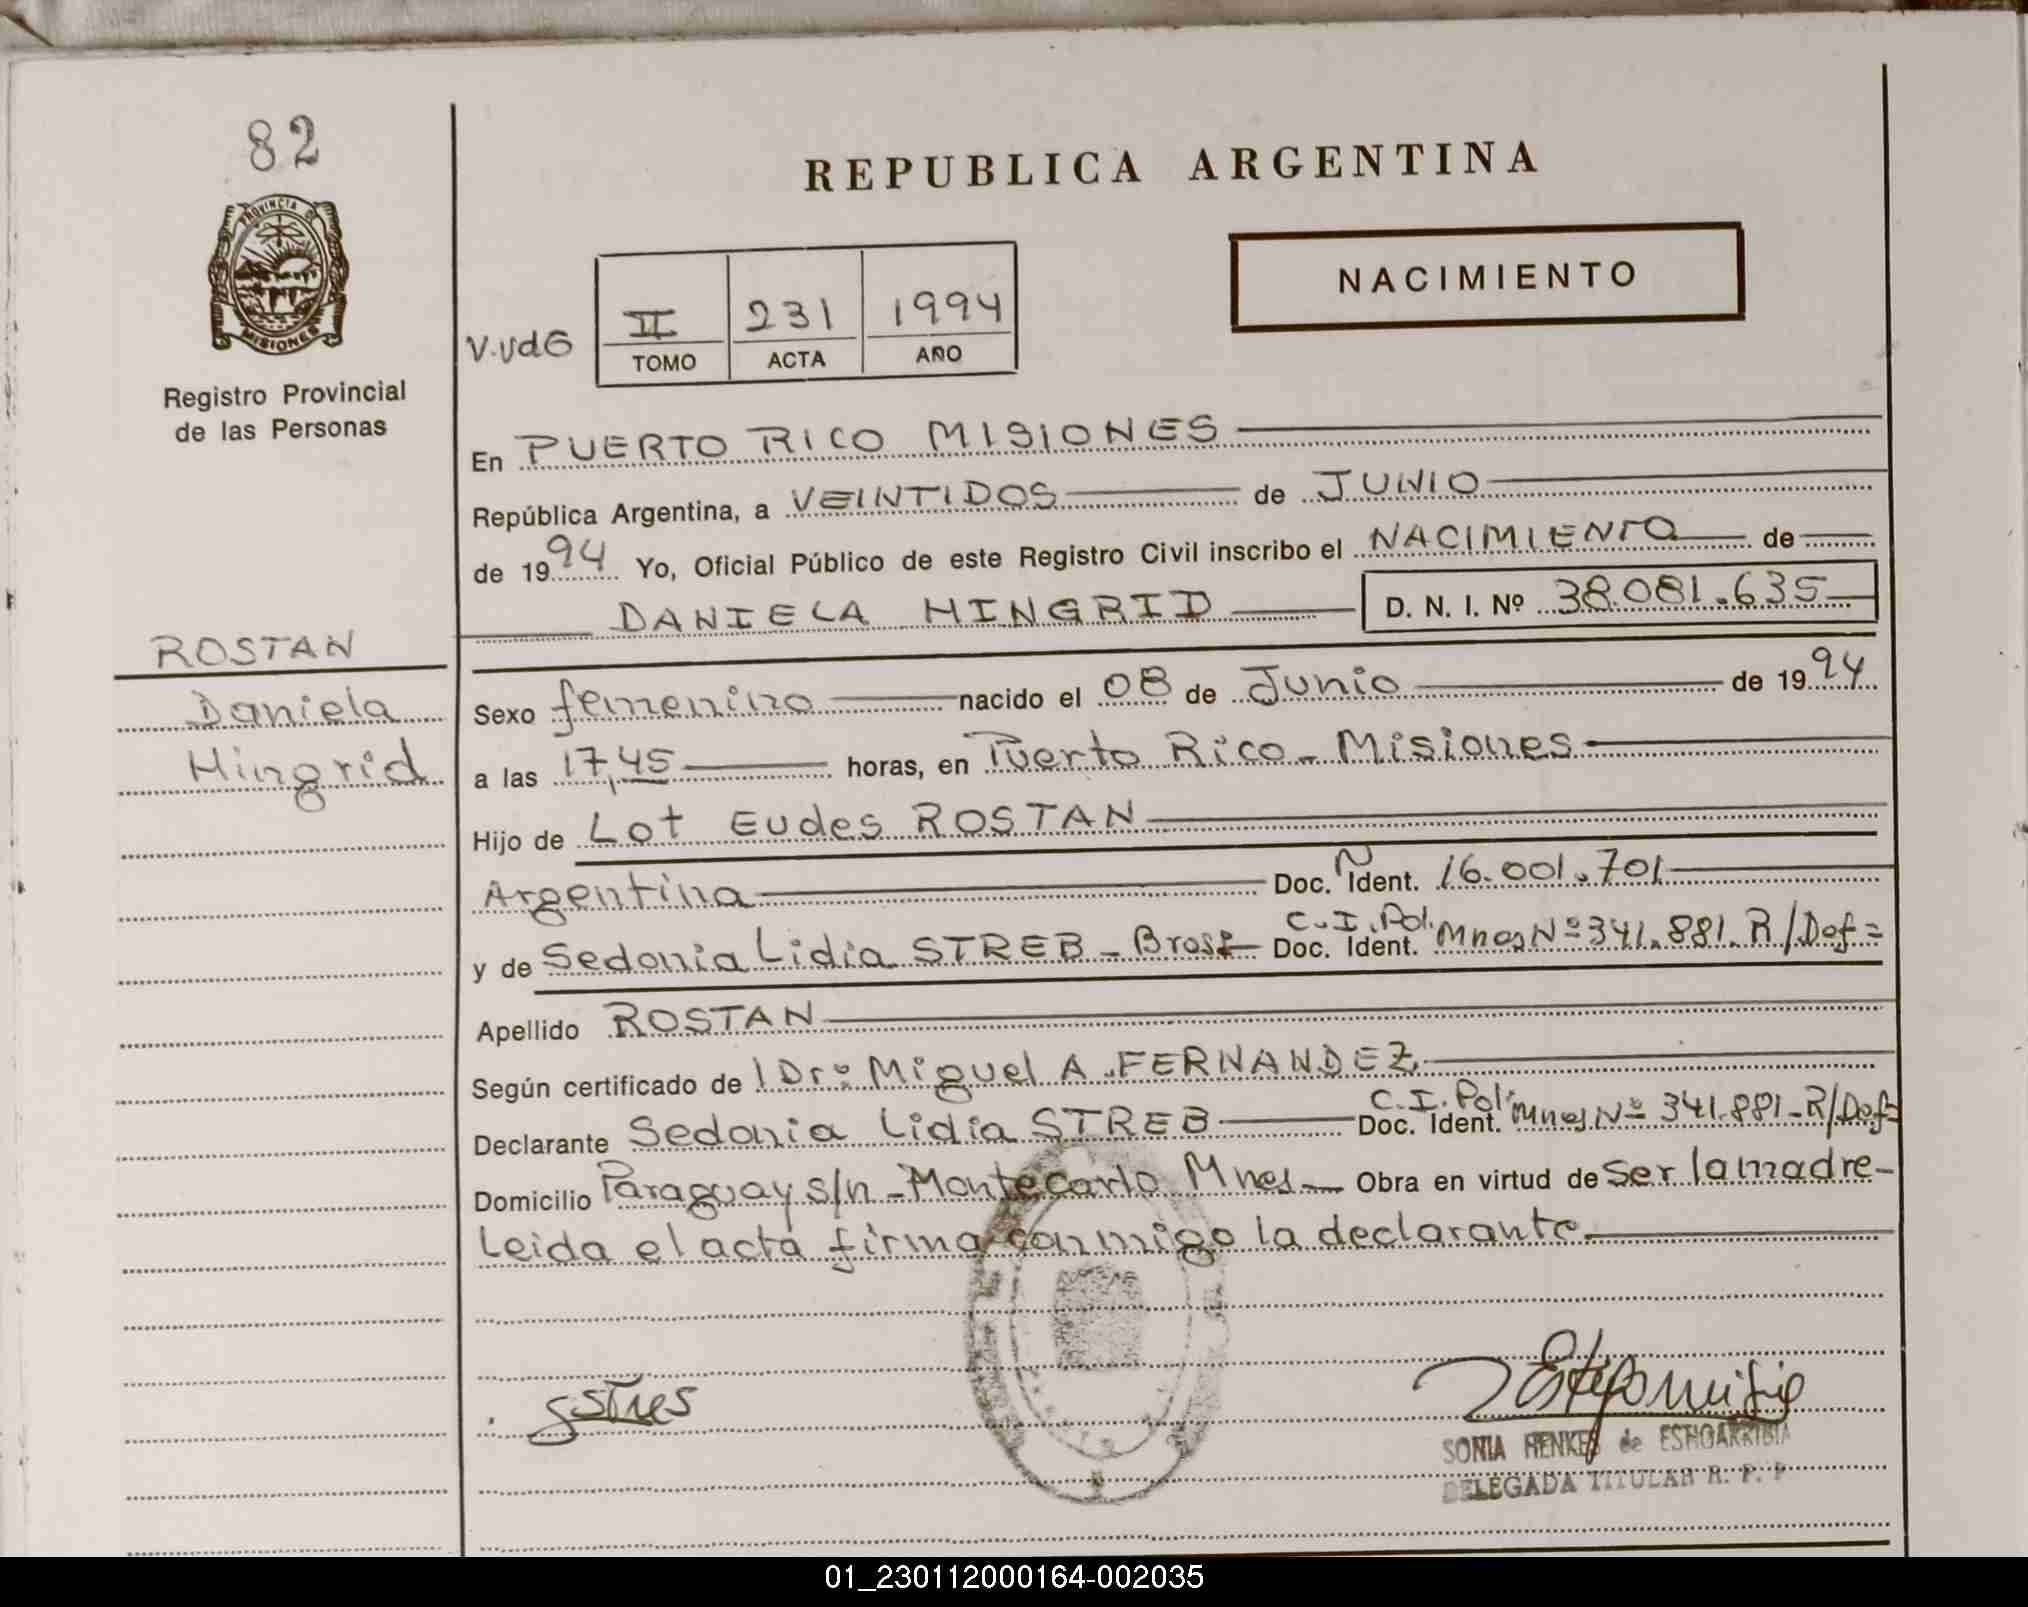 82
PROVINCIA DE
MISIONES
Registro Provincial
de las Personas
REPUBLICA ARGENTINA
NACIMIENTO
V.VdG
II 231 1994
TOMO ACTA AÑO
En PUERTO RICO MISIONES
República Argentina, a VEINTIDOS de JUNIO
de 1994 Yo, Oficial Público de este Registro Civil inscribo el NACIMIENTO de
DANIELA HINGRID D. N. I. Nº 38.081.635
ROSTAN
Daniela
Hingrid
Sexo femenino nacido el 08 de Junio de 1994
a las 17,45 horas, en Puerto Rico - Misiones
Hijo de Lot Eudes ROSTAN
Argentina Doc. N Ident. 16.001.701
y de Sedonia Lidia STREB - Brasi C.I.Pol. Doc. Ident. Mnes Nº 341.881.R/Def=
Apellido ROSTAN
Según certificado de 1 Drº Miguel A. FERNANDEZ
Declarante Sedonia Lidia STREB C.I.Pol Doc. Ident. Mnes Nº 341.881-R/Def=
Domicilio Paraguay s/n - Montecarlo Mnes - Obra en virtud de ser la madre-
Leida el acta firma conmigo la declarante
SONIA HENKES de ESHOARRIBIA
DELEGADA TITULAR R. P. P
01_230112000164-002035